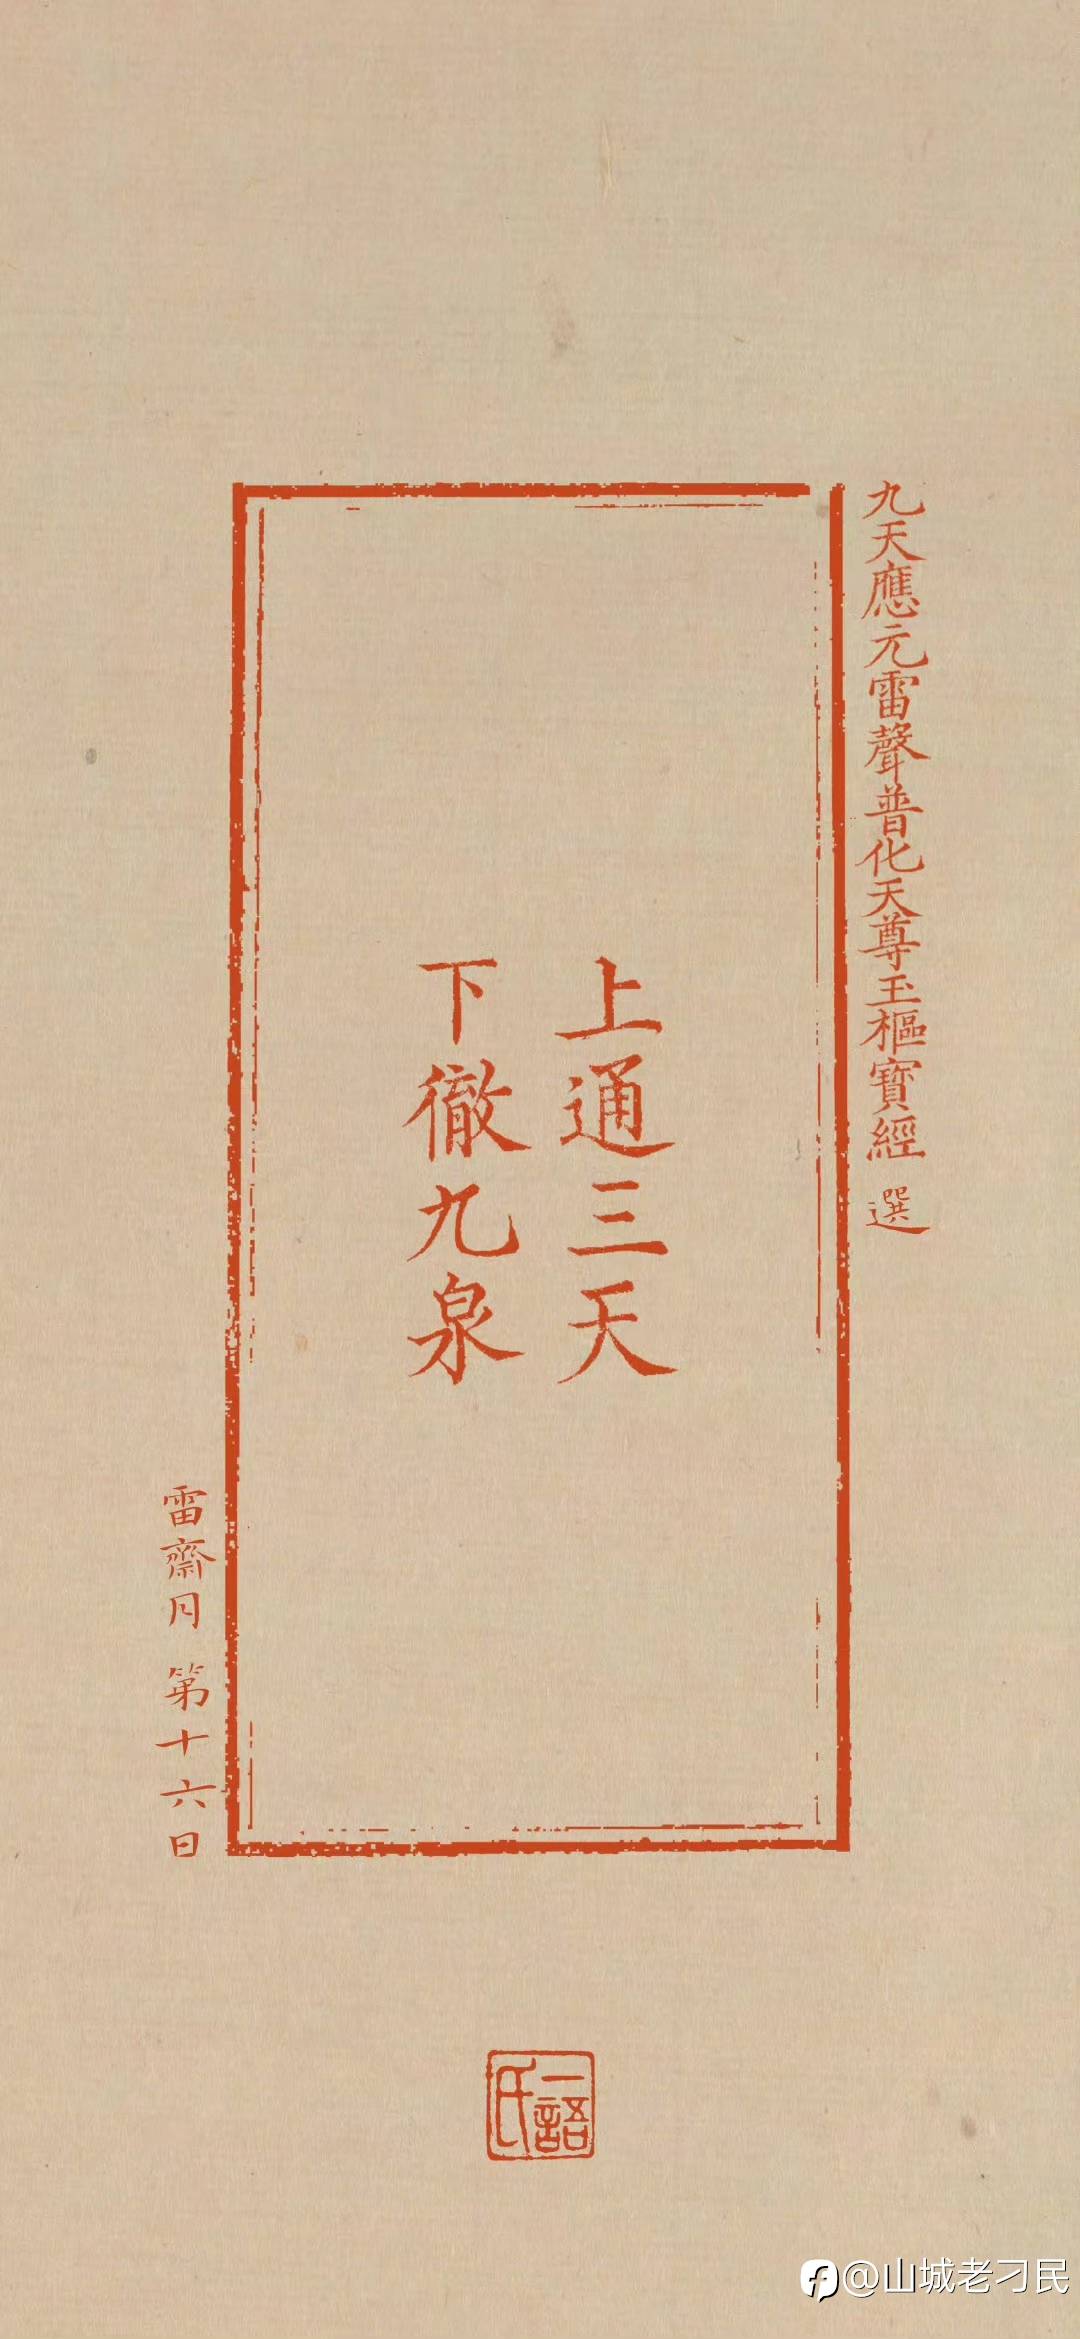 九天應元雷聲普化天尊玉樞寶經 選
上通三天
下徹九泉
雷齋月 第十六日
一語氏
@山城老刁民